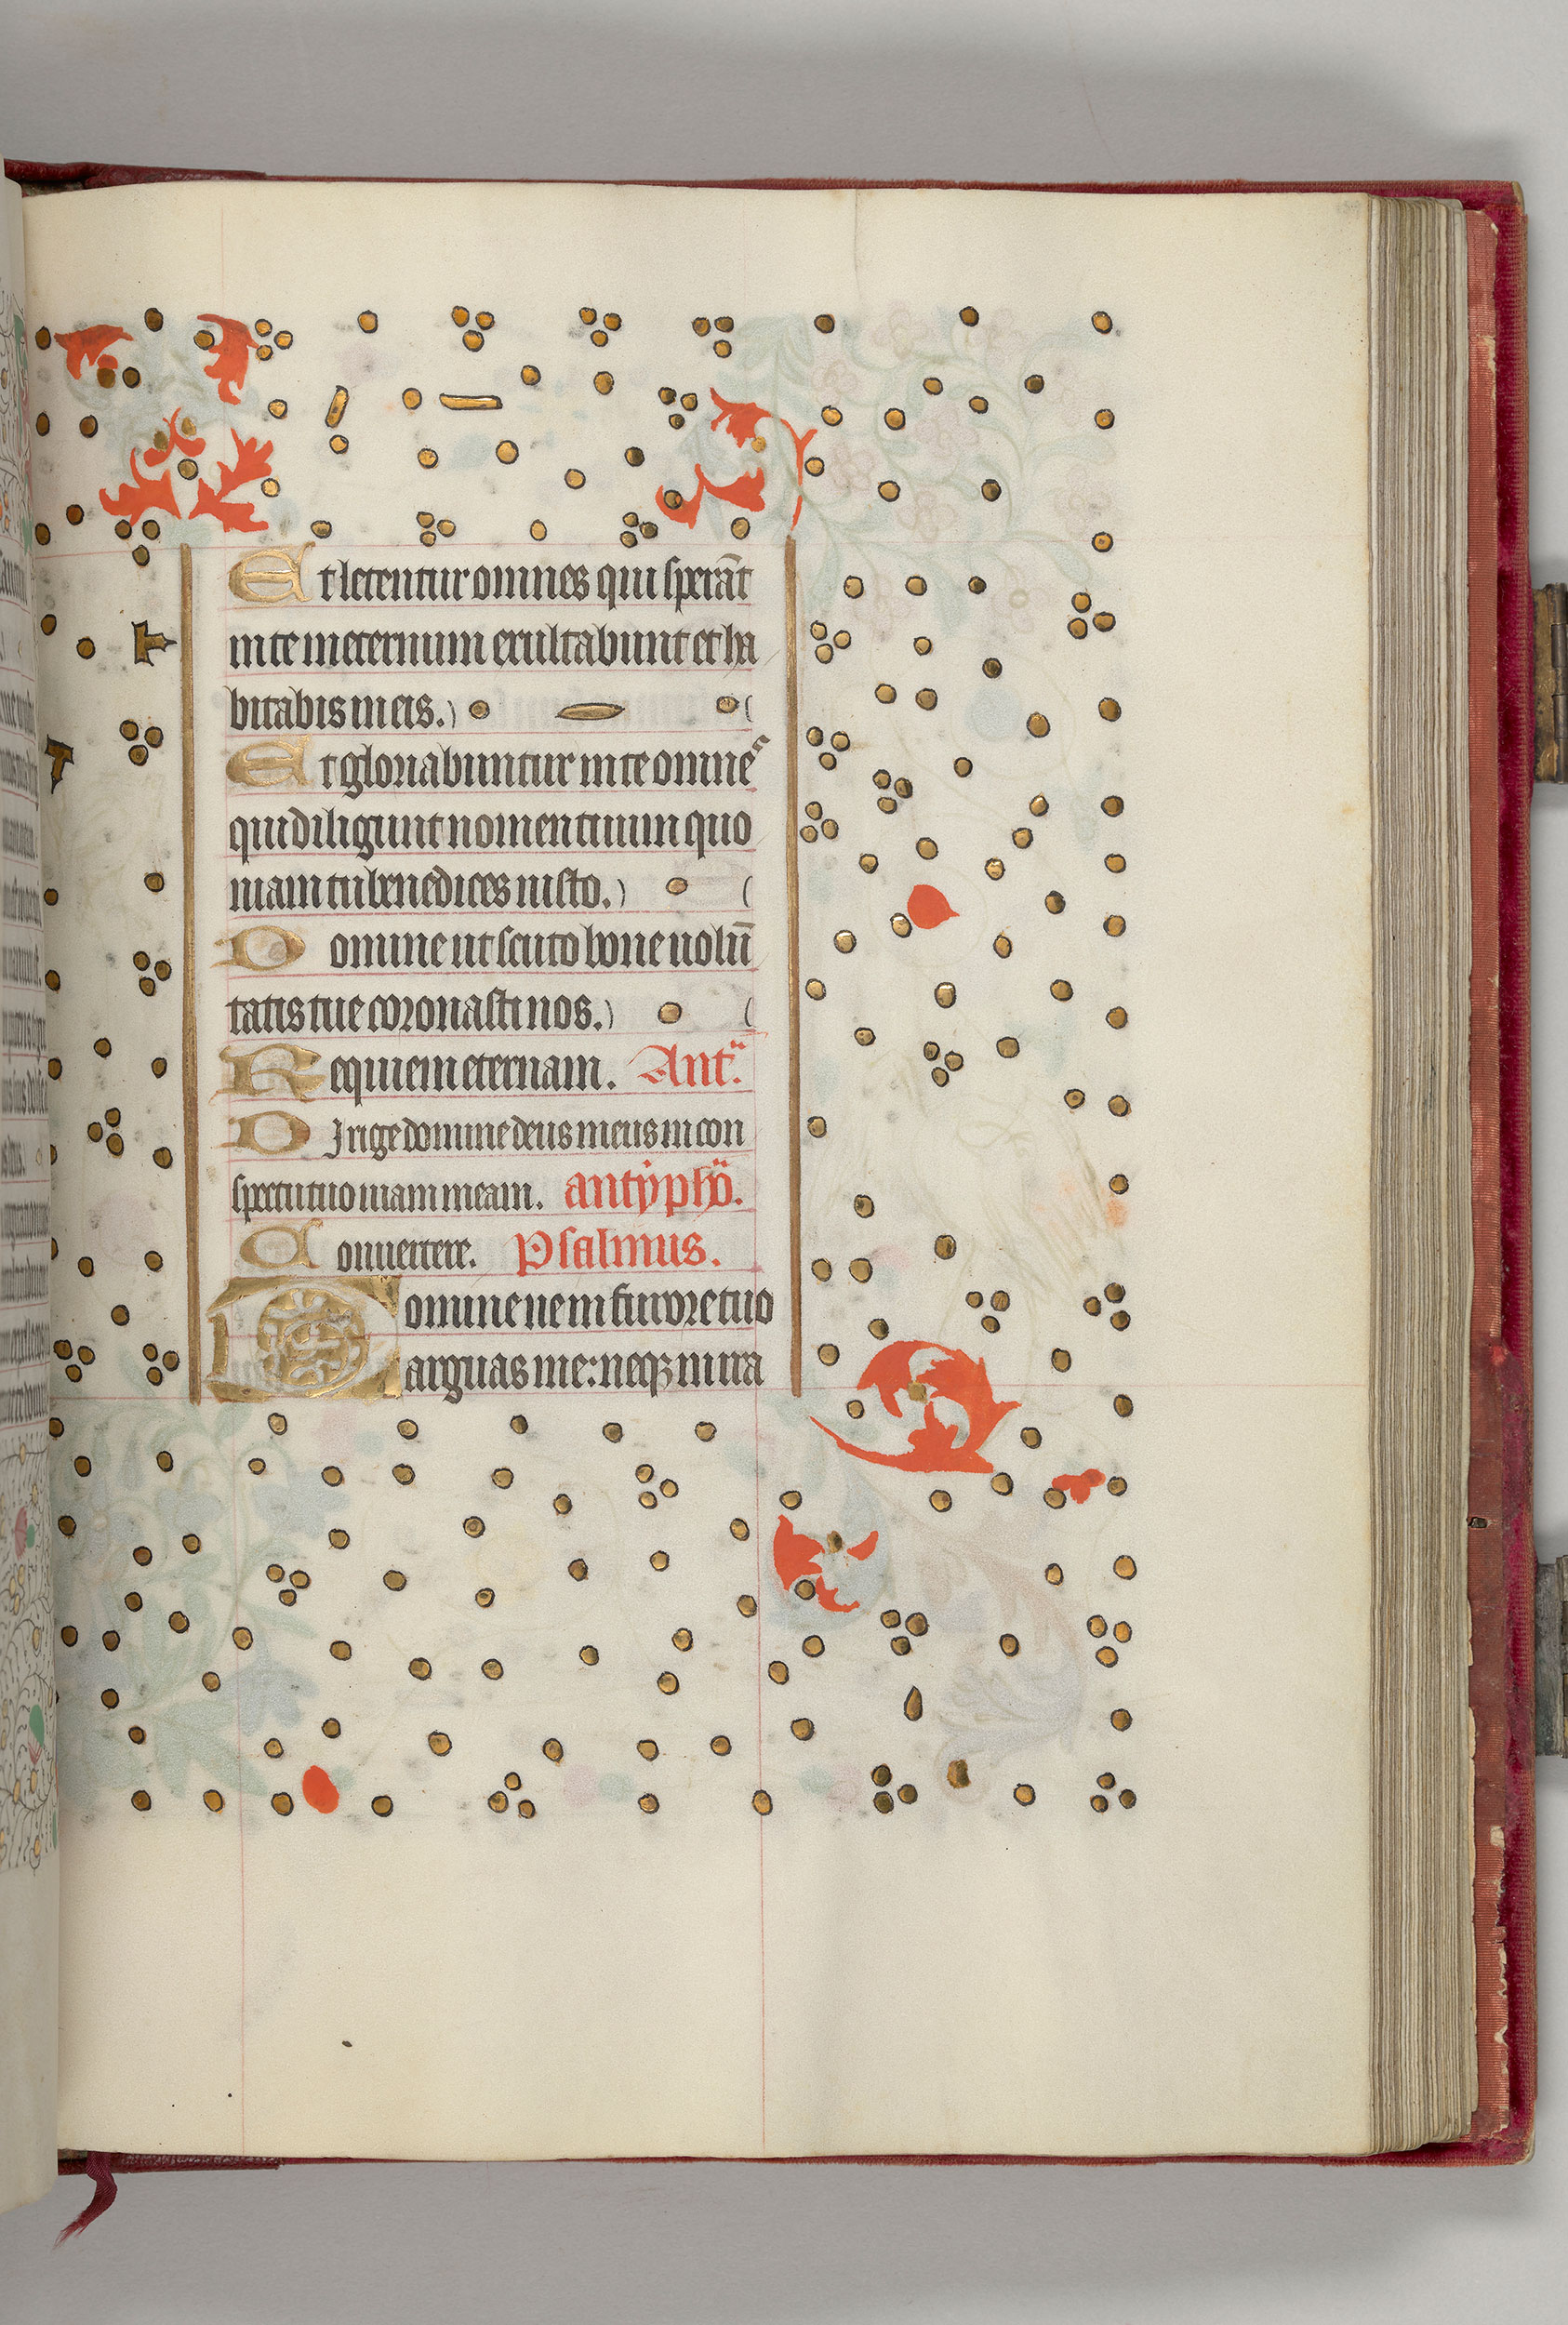 Et letentur omnes qui sperāt
in te in eternum exultabunt et ha
bitabis in eis.
Et gloriabuntur in te omnes
qui diligunt nomen tuum quo
niam tu benedices iusto.
Domine ut scuto bone uolū
tatis tue coronasti nos.
Requiem eternam. Ant.
Dirige domine deus meus in con
spectu tuo uiam meam. antÿpho.
Conuertere. Psalmus.
Domine ne in furore tuo
arguas me: neqꝫ in ira